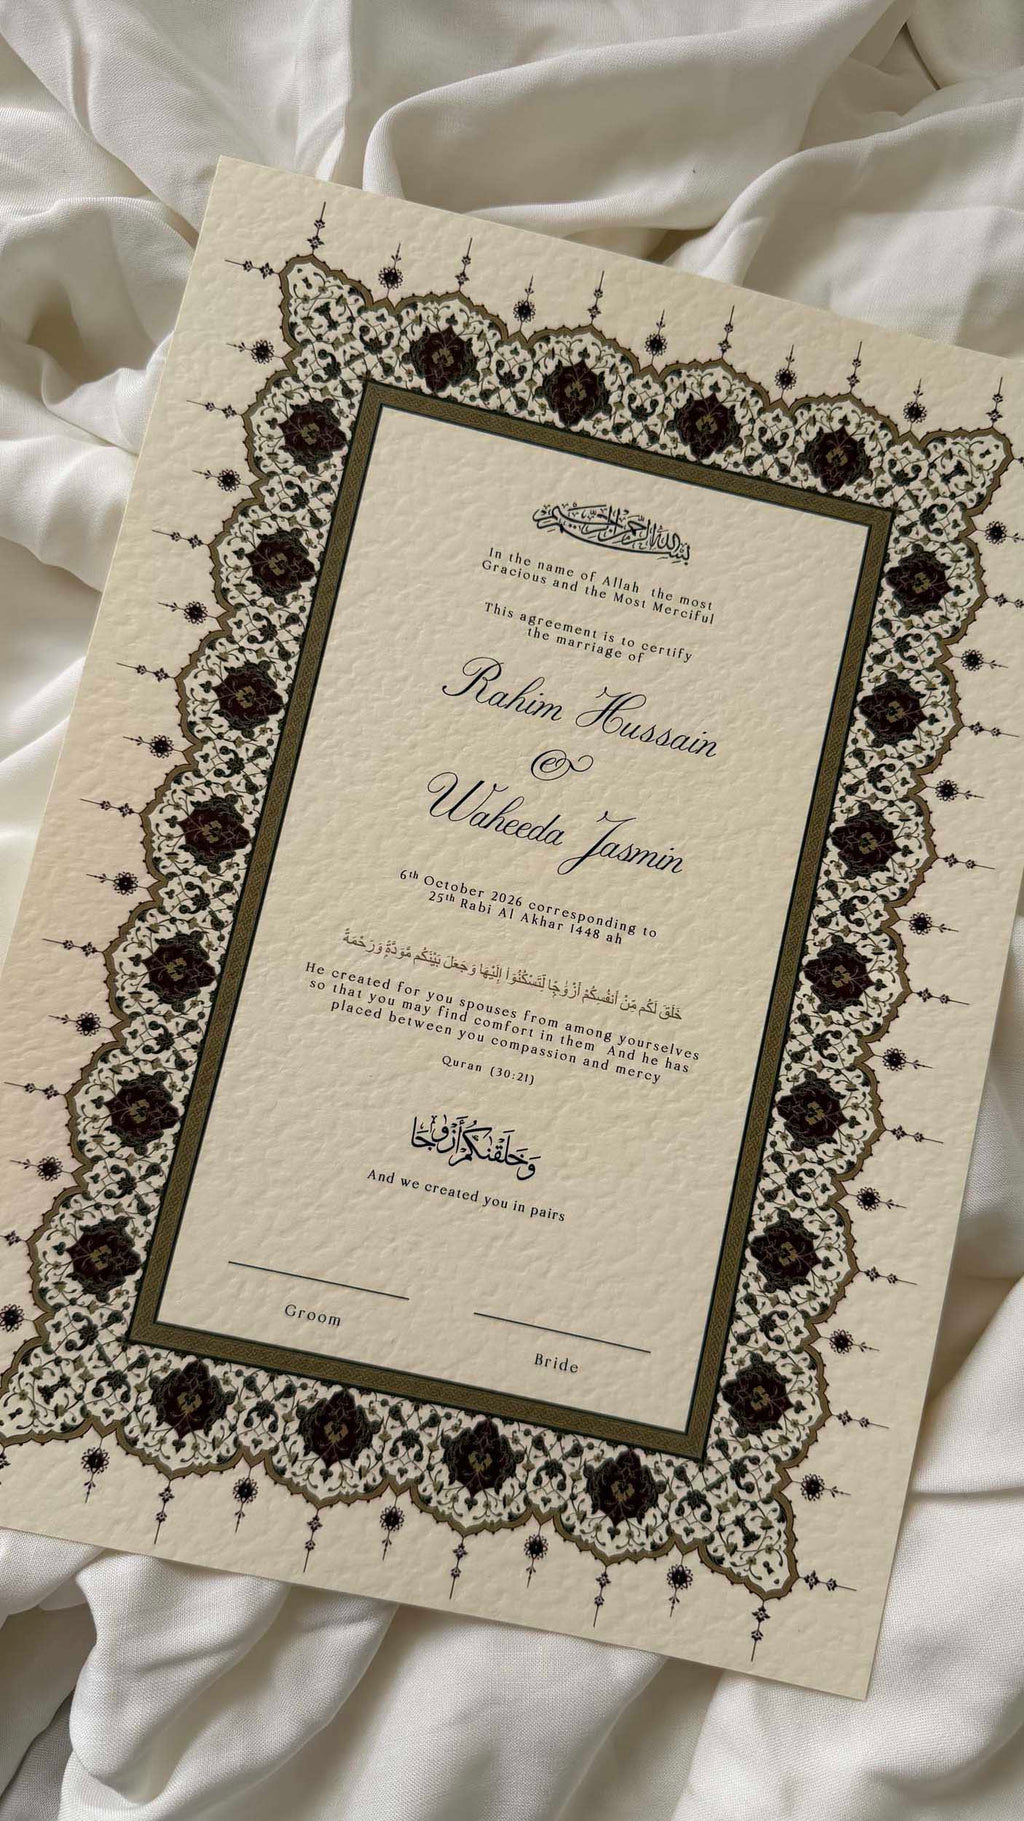 بسم الله الرحمن الرحيم
In the name of Allah the most
Gracious and the Most Merciful
This agreement is to certify
the marriage of
Rahim Hussain
&
Waheeda Jasmin
6th October 2026 corresponding to
25th Rabi Al Akhar 1448 ah
خَلَقَ لَكُم مِّنْ أَنفُسِكُمْ أَزْوَٰجًا لِّتَسْكُنُوٓا۟ إِلَيْهَا وَجَعَلَ بَيْنَكُم مَّوَدَّةً وَرَحْمَةً
He created for you spouses from among yourselves
so that you may find comfort in them And he has
placed between you compassion and mercy
Quran (30:21)
وَخَلَقْنَٰكُمْ أَزْوَٰجًا
And we created you in pairs
Groom
Bride